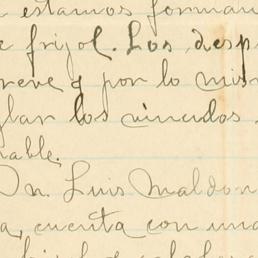 estamos forman
e frijol. Los desp
breve y por lo mis
glar los vinculos
nable.
On. Luis Maldon
a, cuenta con una